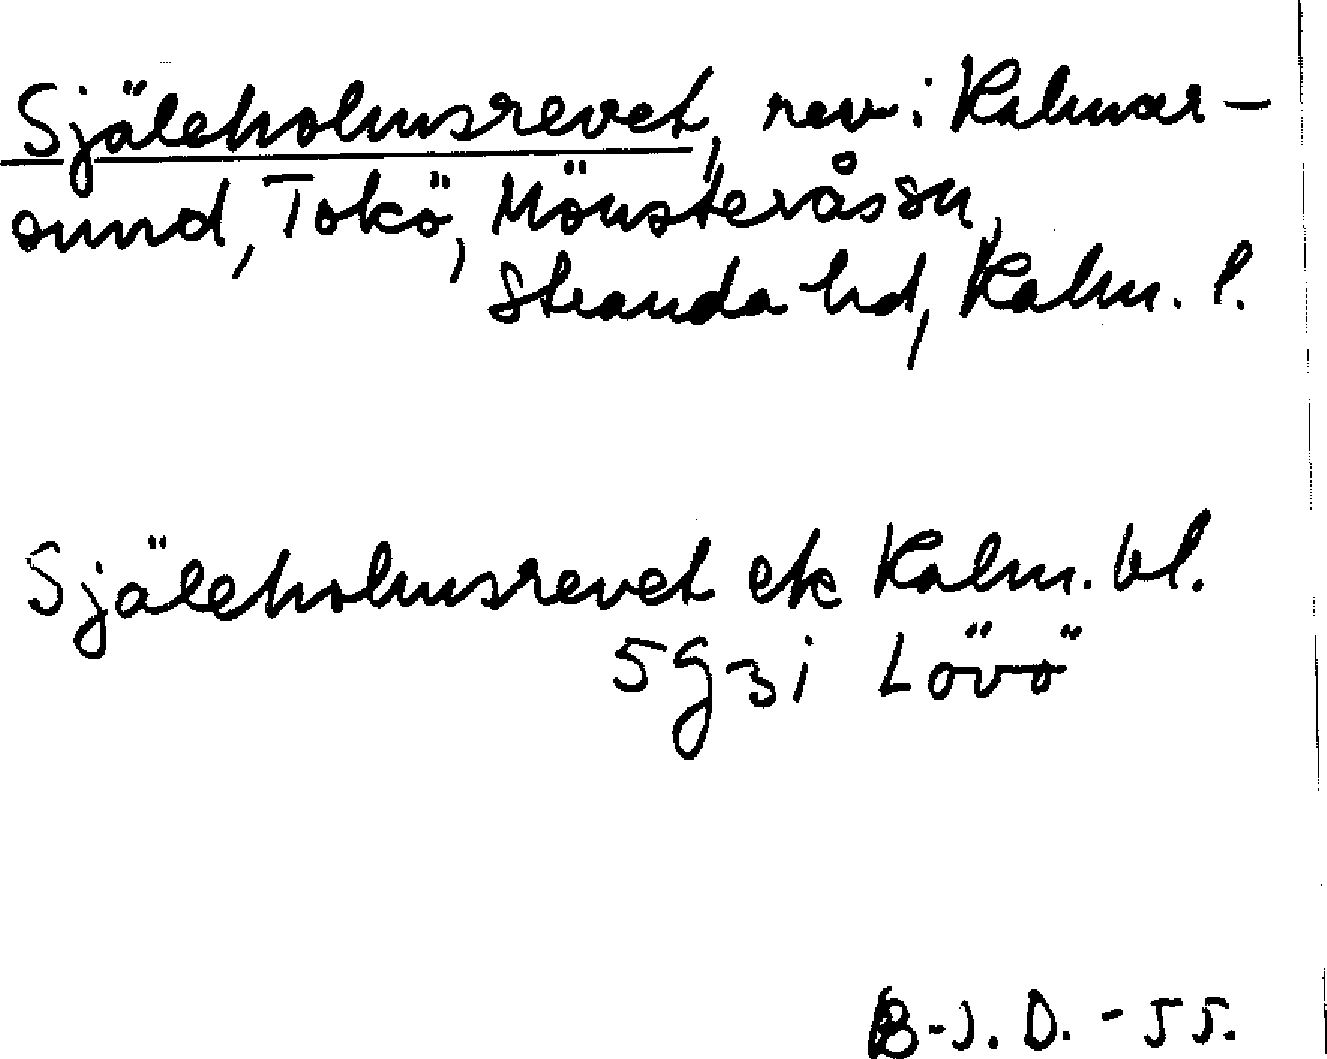 Själeholmsrevet, rev i Kalmar-
sund, Tokö, Mönsterås sn,
Stranda hd, Kalm. l.
Själeholmsrevet ek Kalm. bl.
5G3i Lövö
B-J. D. - 55.